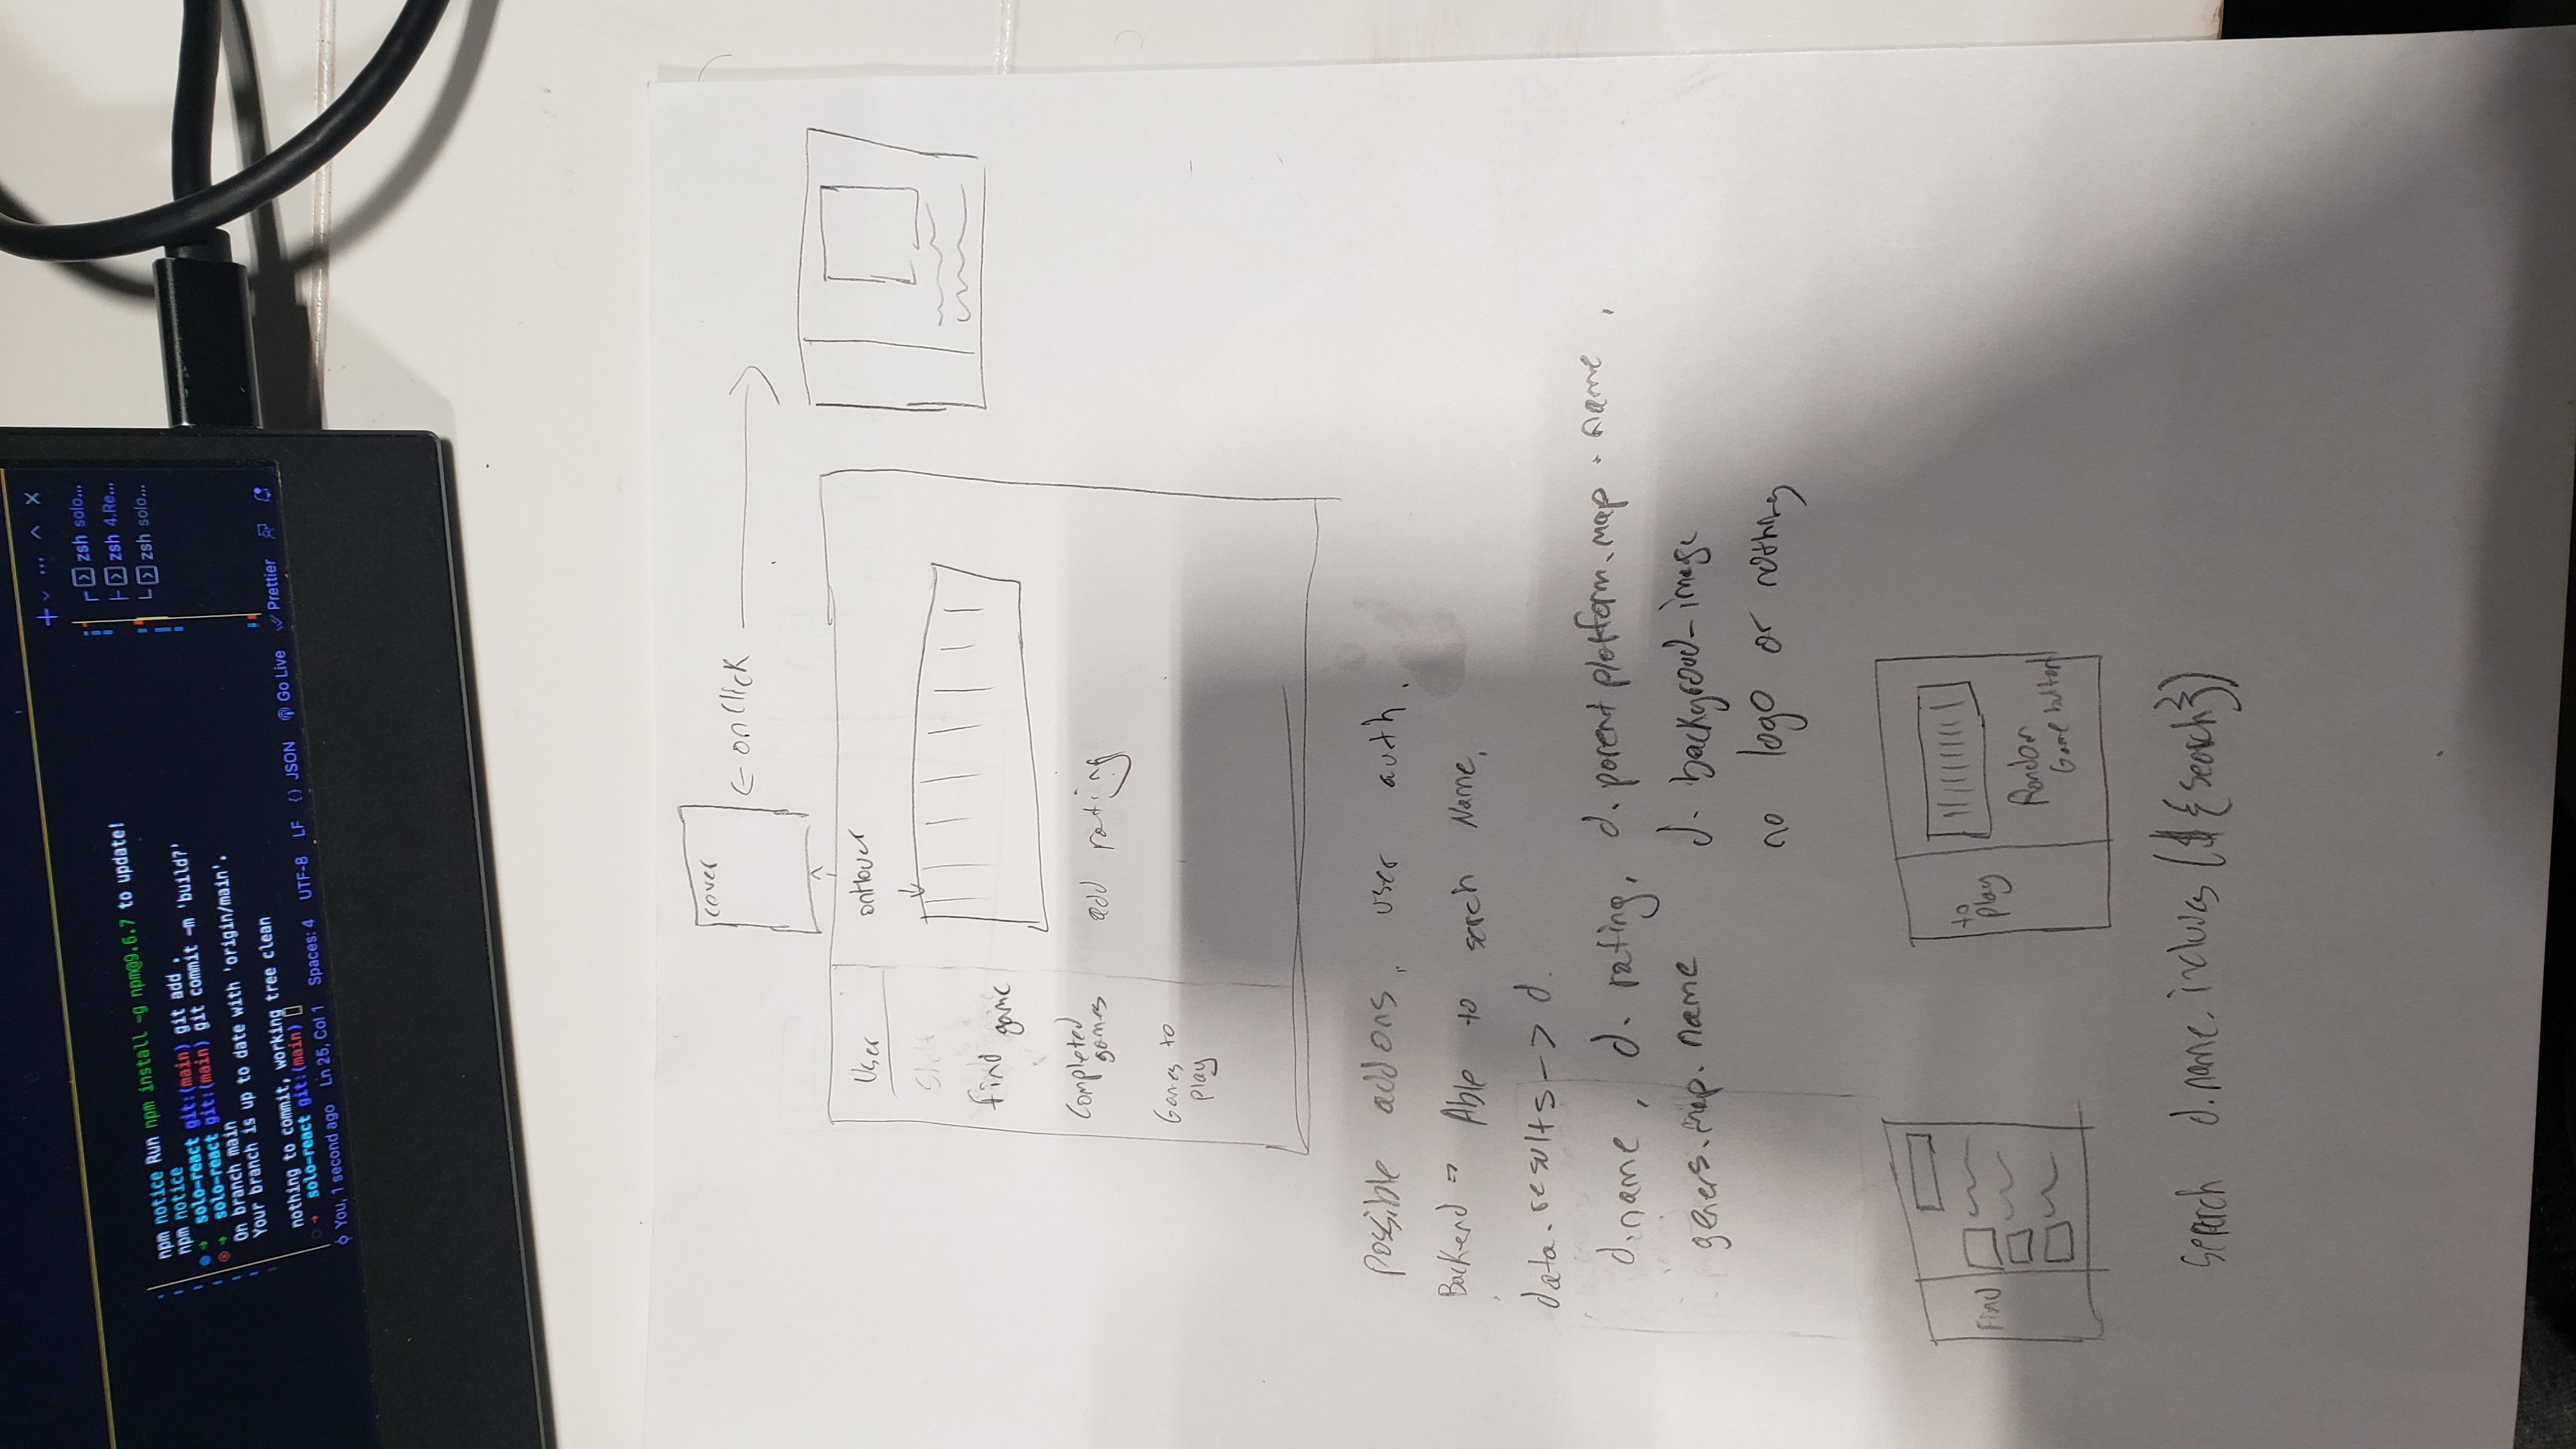 npm notice Run npm install -g npm@9.6.7 to update!
npm notice
solo-react git:(main) git add .
solo-react git:(main) git commit -m 'build?'
On branch main
Your branch is up to date with 'origin/main'.
nothing to commit, working tree clean
solo-react git:(main)
zsh solo...
zsh 4.Re...
zsh solo...
You, 1 second ago Ln 25, Col 1 Spaces: 4 UTF-8 LF {} JSON Go Live Prettier
cover
<- onClick ->
User
onHover
find game
Completed
games
add rating
Games to
play
possible addons, user auth.
Backend => Able to serch Name,
data.results -> d.
d.name, d.rating, d.parentplatform.map.name,
geners.map.name d.backgroud_image
no logo or nothing
Find
to
play
Random
Game button
Search d.name.includes(${search})